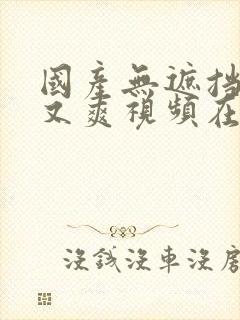 國產無遮挡
又爽視頻在
沒錢沒車沒房